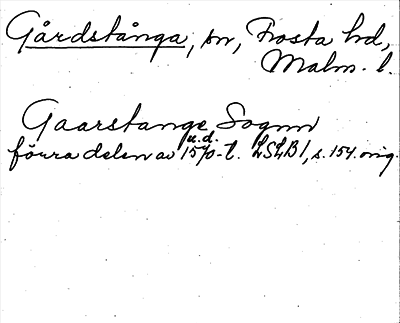 Gårdstånga, sn, Frosta hd,
Malm. l.
Gaarstange Sognn
u. d.
förra delen av 1570-t. LSLB 1, s. 154. orig.